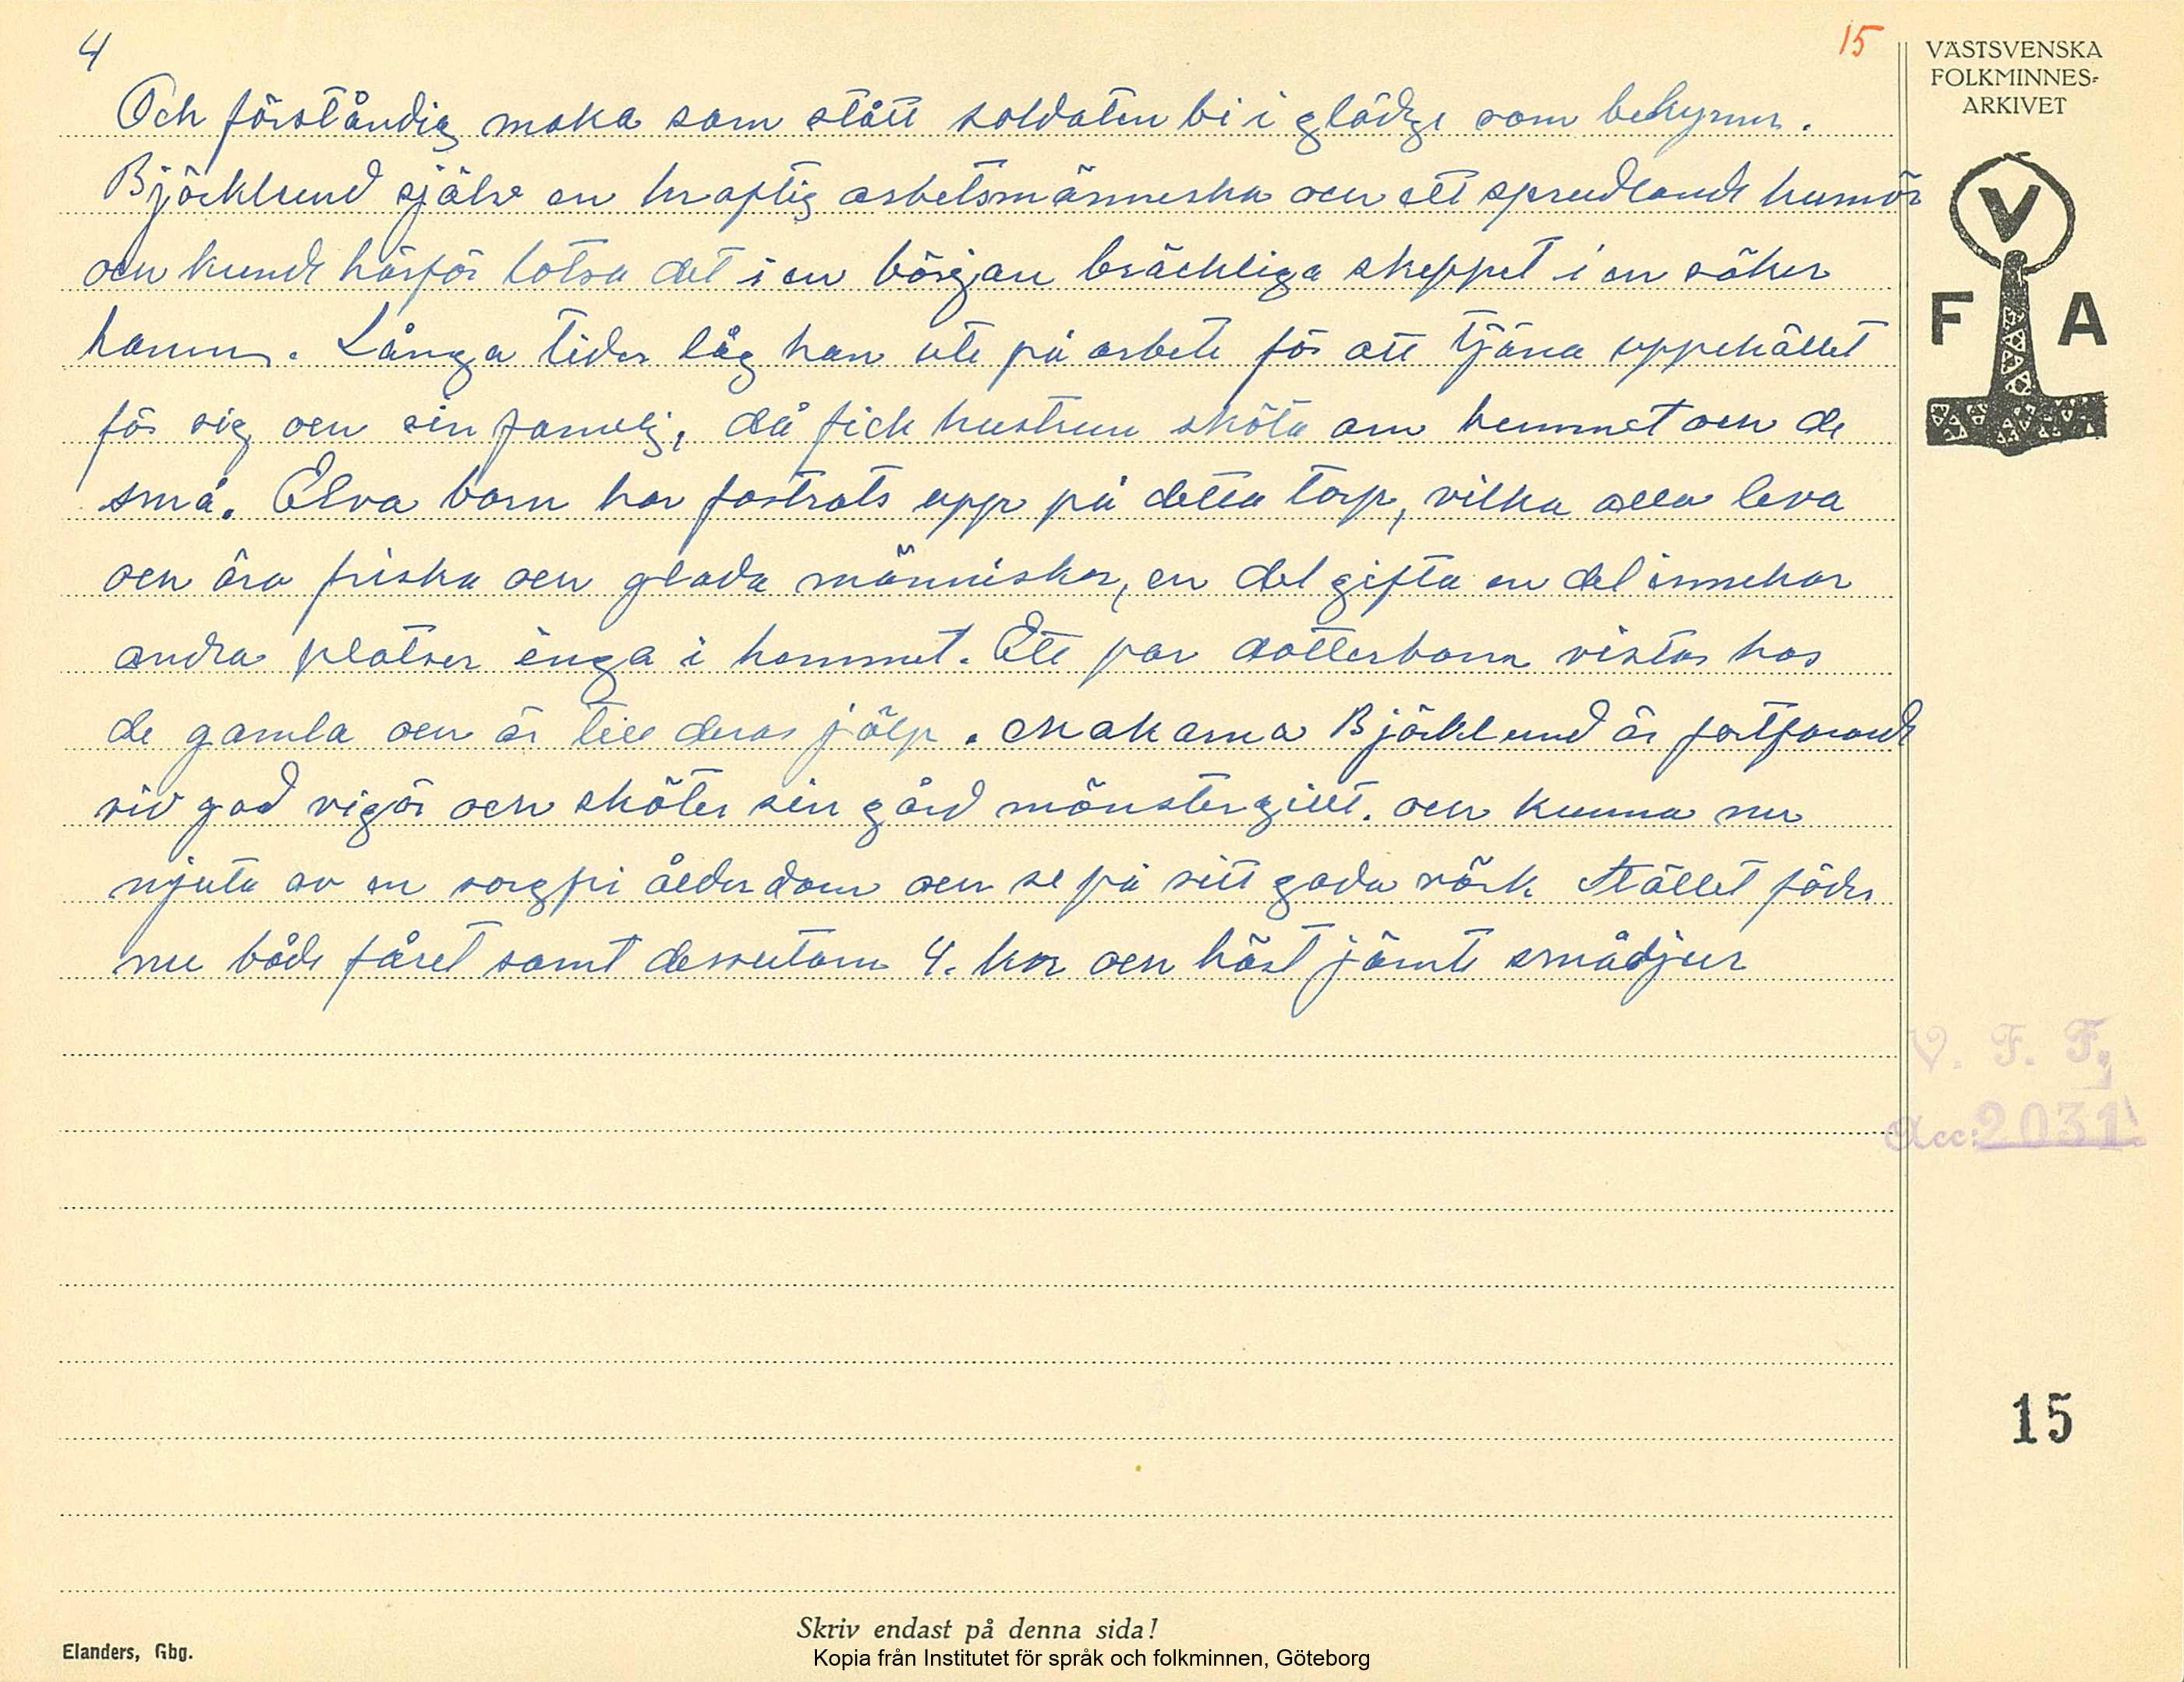 4
15
Och förståndig maka som stått soldaten bi i glädge som bekymer.
Björklund själv en kraftig arbetsmänneska och ett sprudlande humör
och kunde härför lotsa det i en börgan bräckliga skeppet i en säker
hamn. Långa tider låg han ute på arbete för att tjäna uppehället
för sig och sin familj, då fick hustrun sköta om hemmet och de
små. Elva barn har fostrats upp på detta torp, vilka alla leva
och äro friska och glada människor, en del gifta en del innehar
andra platser inga i hemmet. Ett par dotterbarn vistas hos
de gamla och är till deras jälp. Makarna Björklund är fortfarande
vid god vigör och sköter sin gård mönstergillt. och kunna nu
njuta av en sorgfri ålderdom och se på sitt goda värk Stället föder
nu både fåret samt dessutom 4. kor och häst jämte smådjur
VÄSTSVENSKA
FOLKMINNES-
ARKIVET
V
F A
V. F. F.
Acc: 2031
15
Skriv endast på denna sida!
Elanders, Gbg.
Kopia från Institutet för språk och folkminnen, Göteborg